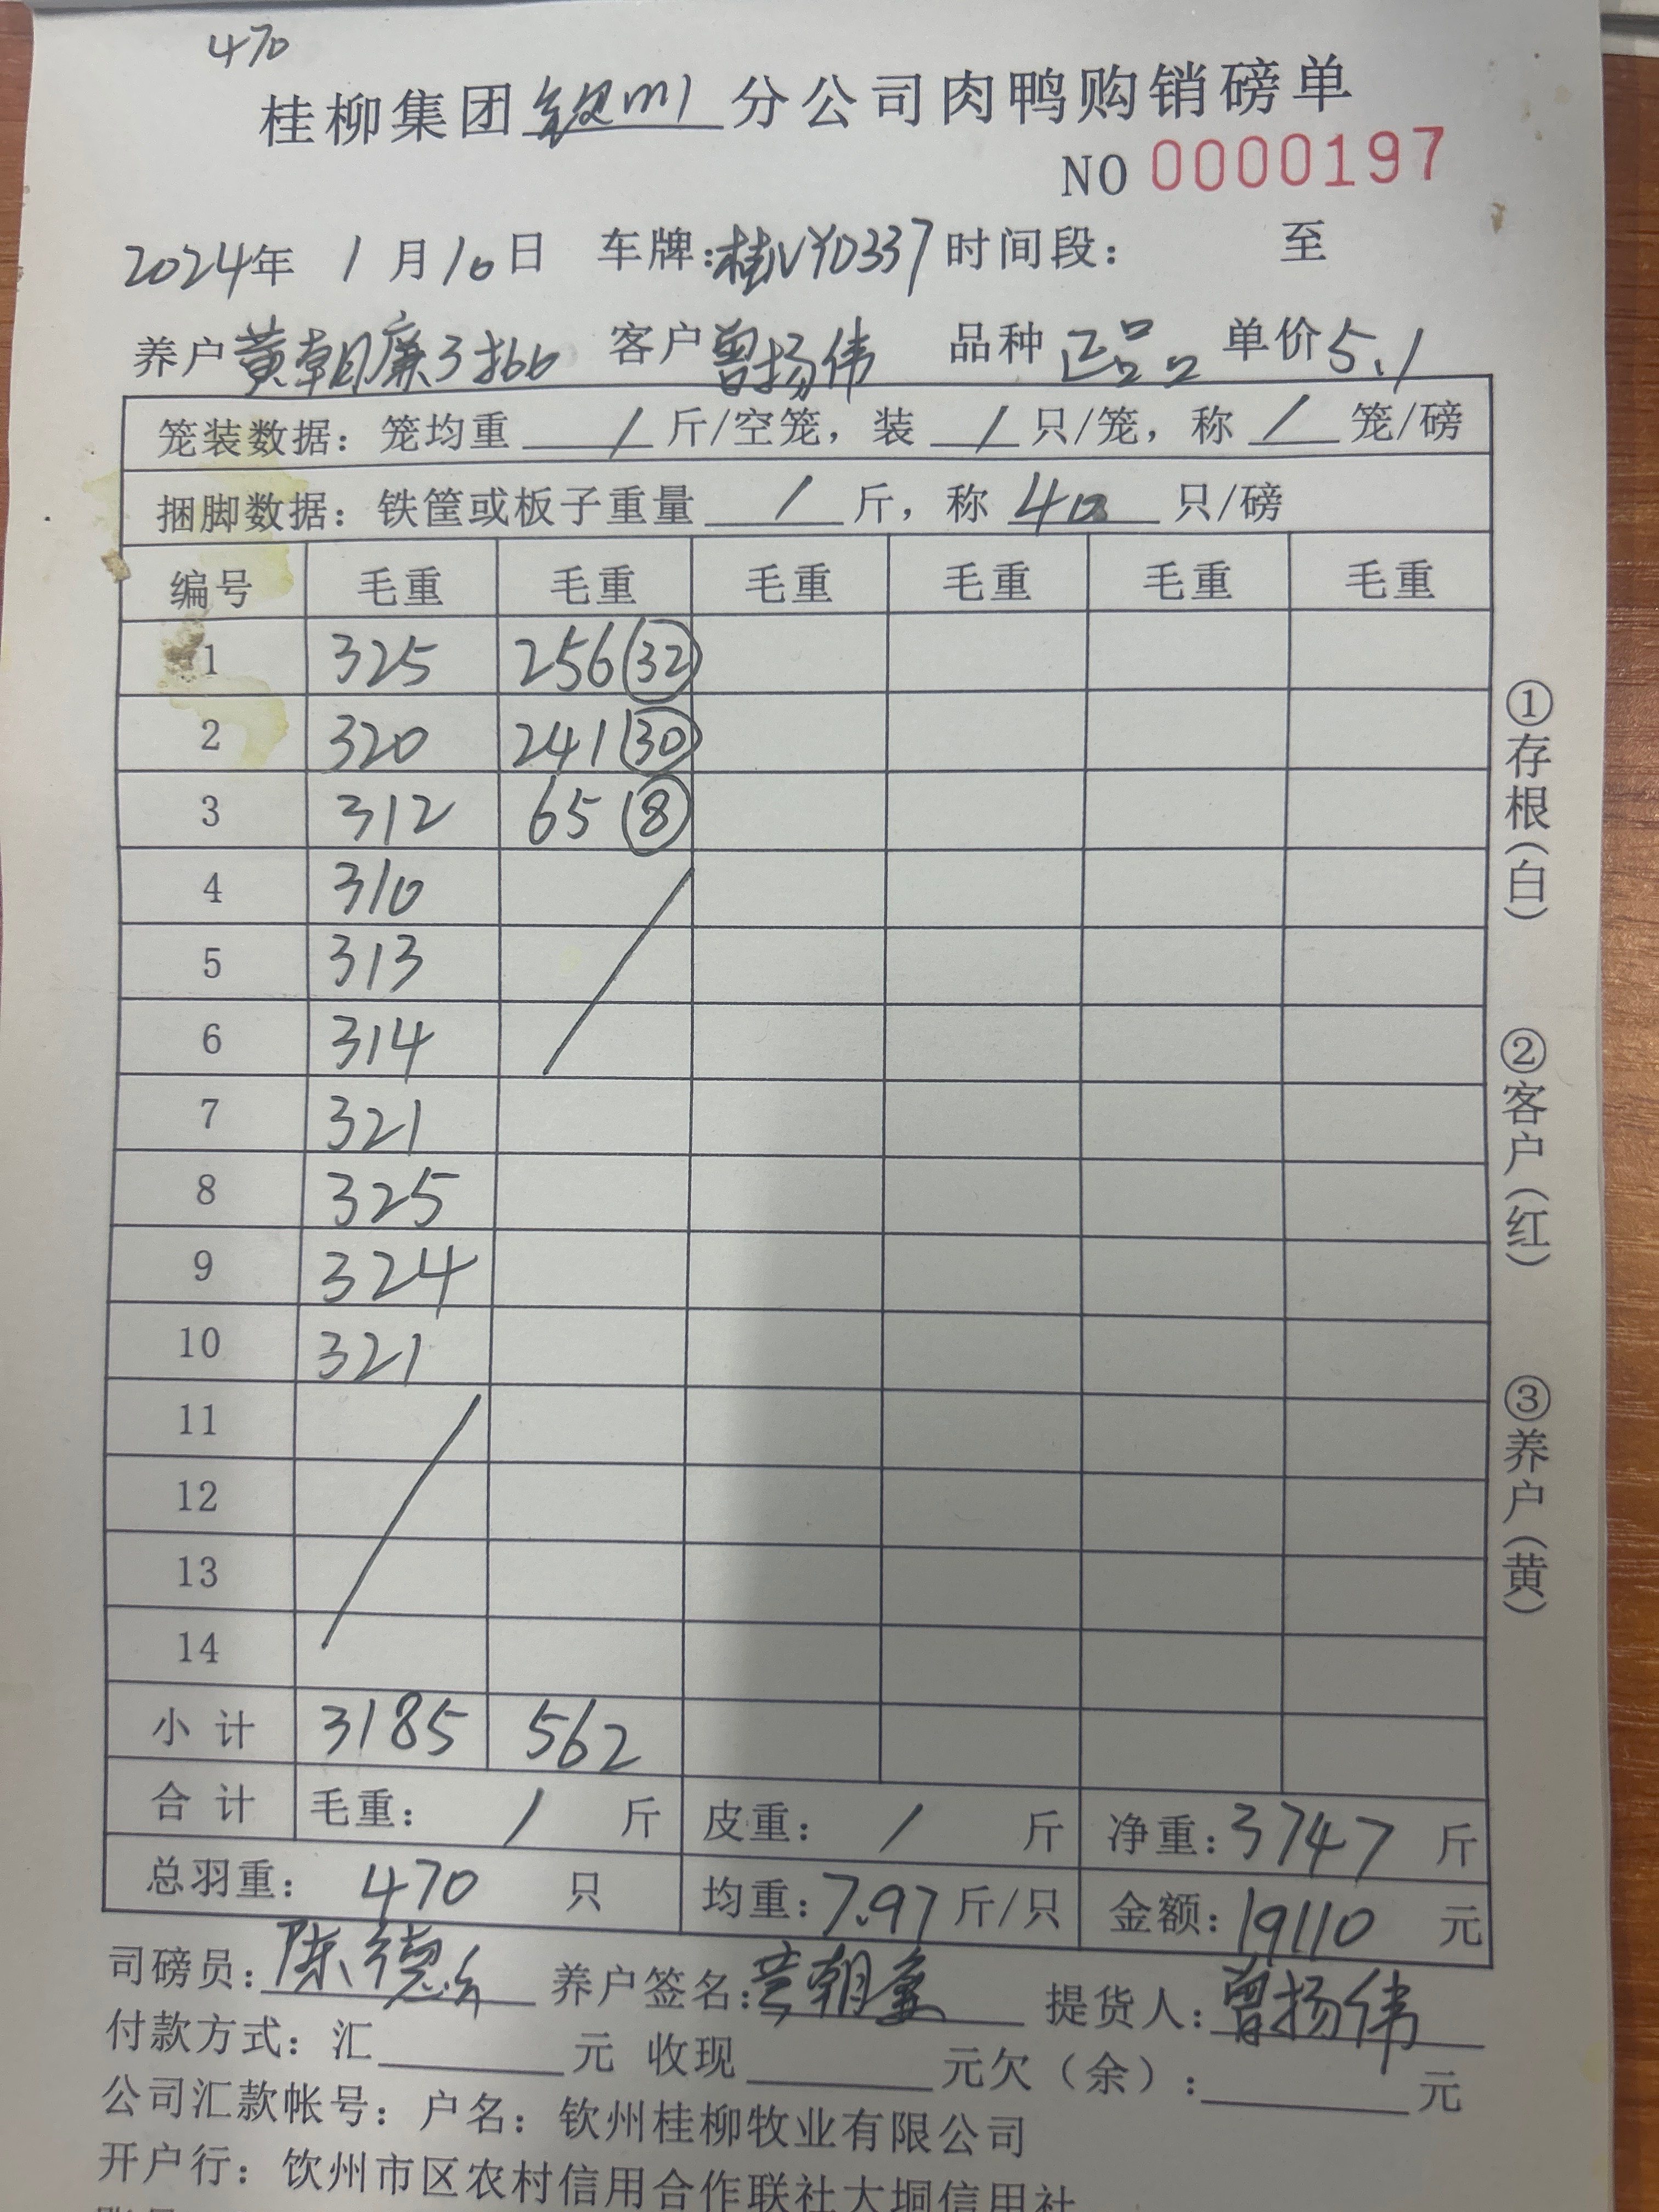 470
桂柳集团钦州分公司肉鸭购销磅单
NO 0000197
2024年 1月10日 车牌:桂NY0337 时间段： 至
养户黄朝廉3批 客户曾扬伟 品种 正品 单价5.1
笼装数据：笼均重 / 斤/空笼，装 / 只/笼，称 / 笼/磅
捆脚数据：铁筐或板子重量 / 斤，称 40 只/磅
编号 毛重 毛重 毛重 毛重 毛重 毛重
1 325 256 (32)
2 320 241 (30)
3 312 65 (8)
4 310
5 313
6 314
7 321
8 325
9 324
10 321
11
12
13
14
小计 3185 562
合计 毛重： / 斤 皮重： / 斤 净重：3747 斤
总羽重： 470 只 均重：7.97斤/只 金额：19110 元
司磅员：陈德 养户签名：黄朝廉 提货人：曾扬伟
付款方式：汇 元 收现 元欠（余）： 元
公司汇款帐号：户名：钦州桂柳牧业有限公司
开户行：饮州市区农村信用合作联社大垌信用社
①存根(白)
②客户(红)
③养户(黄)